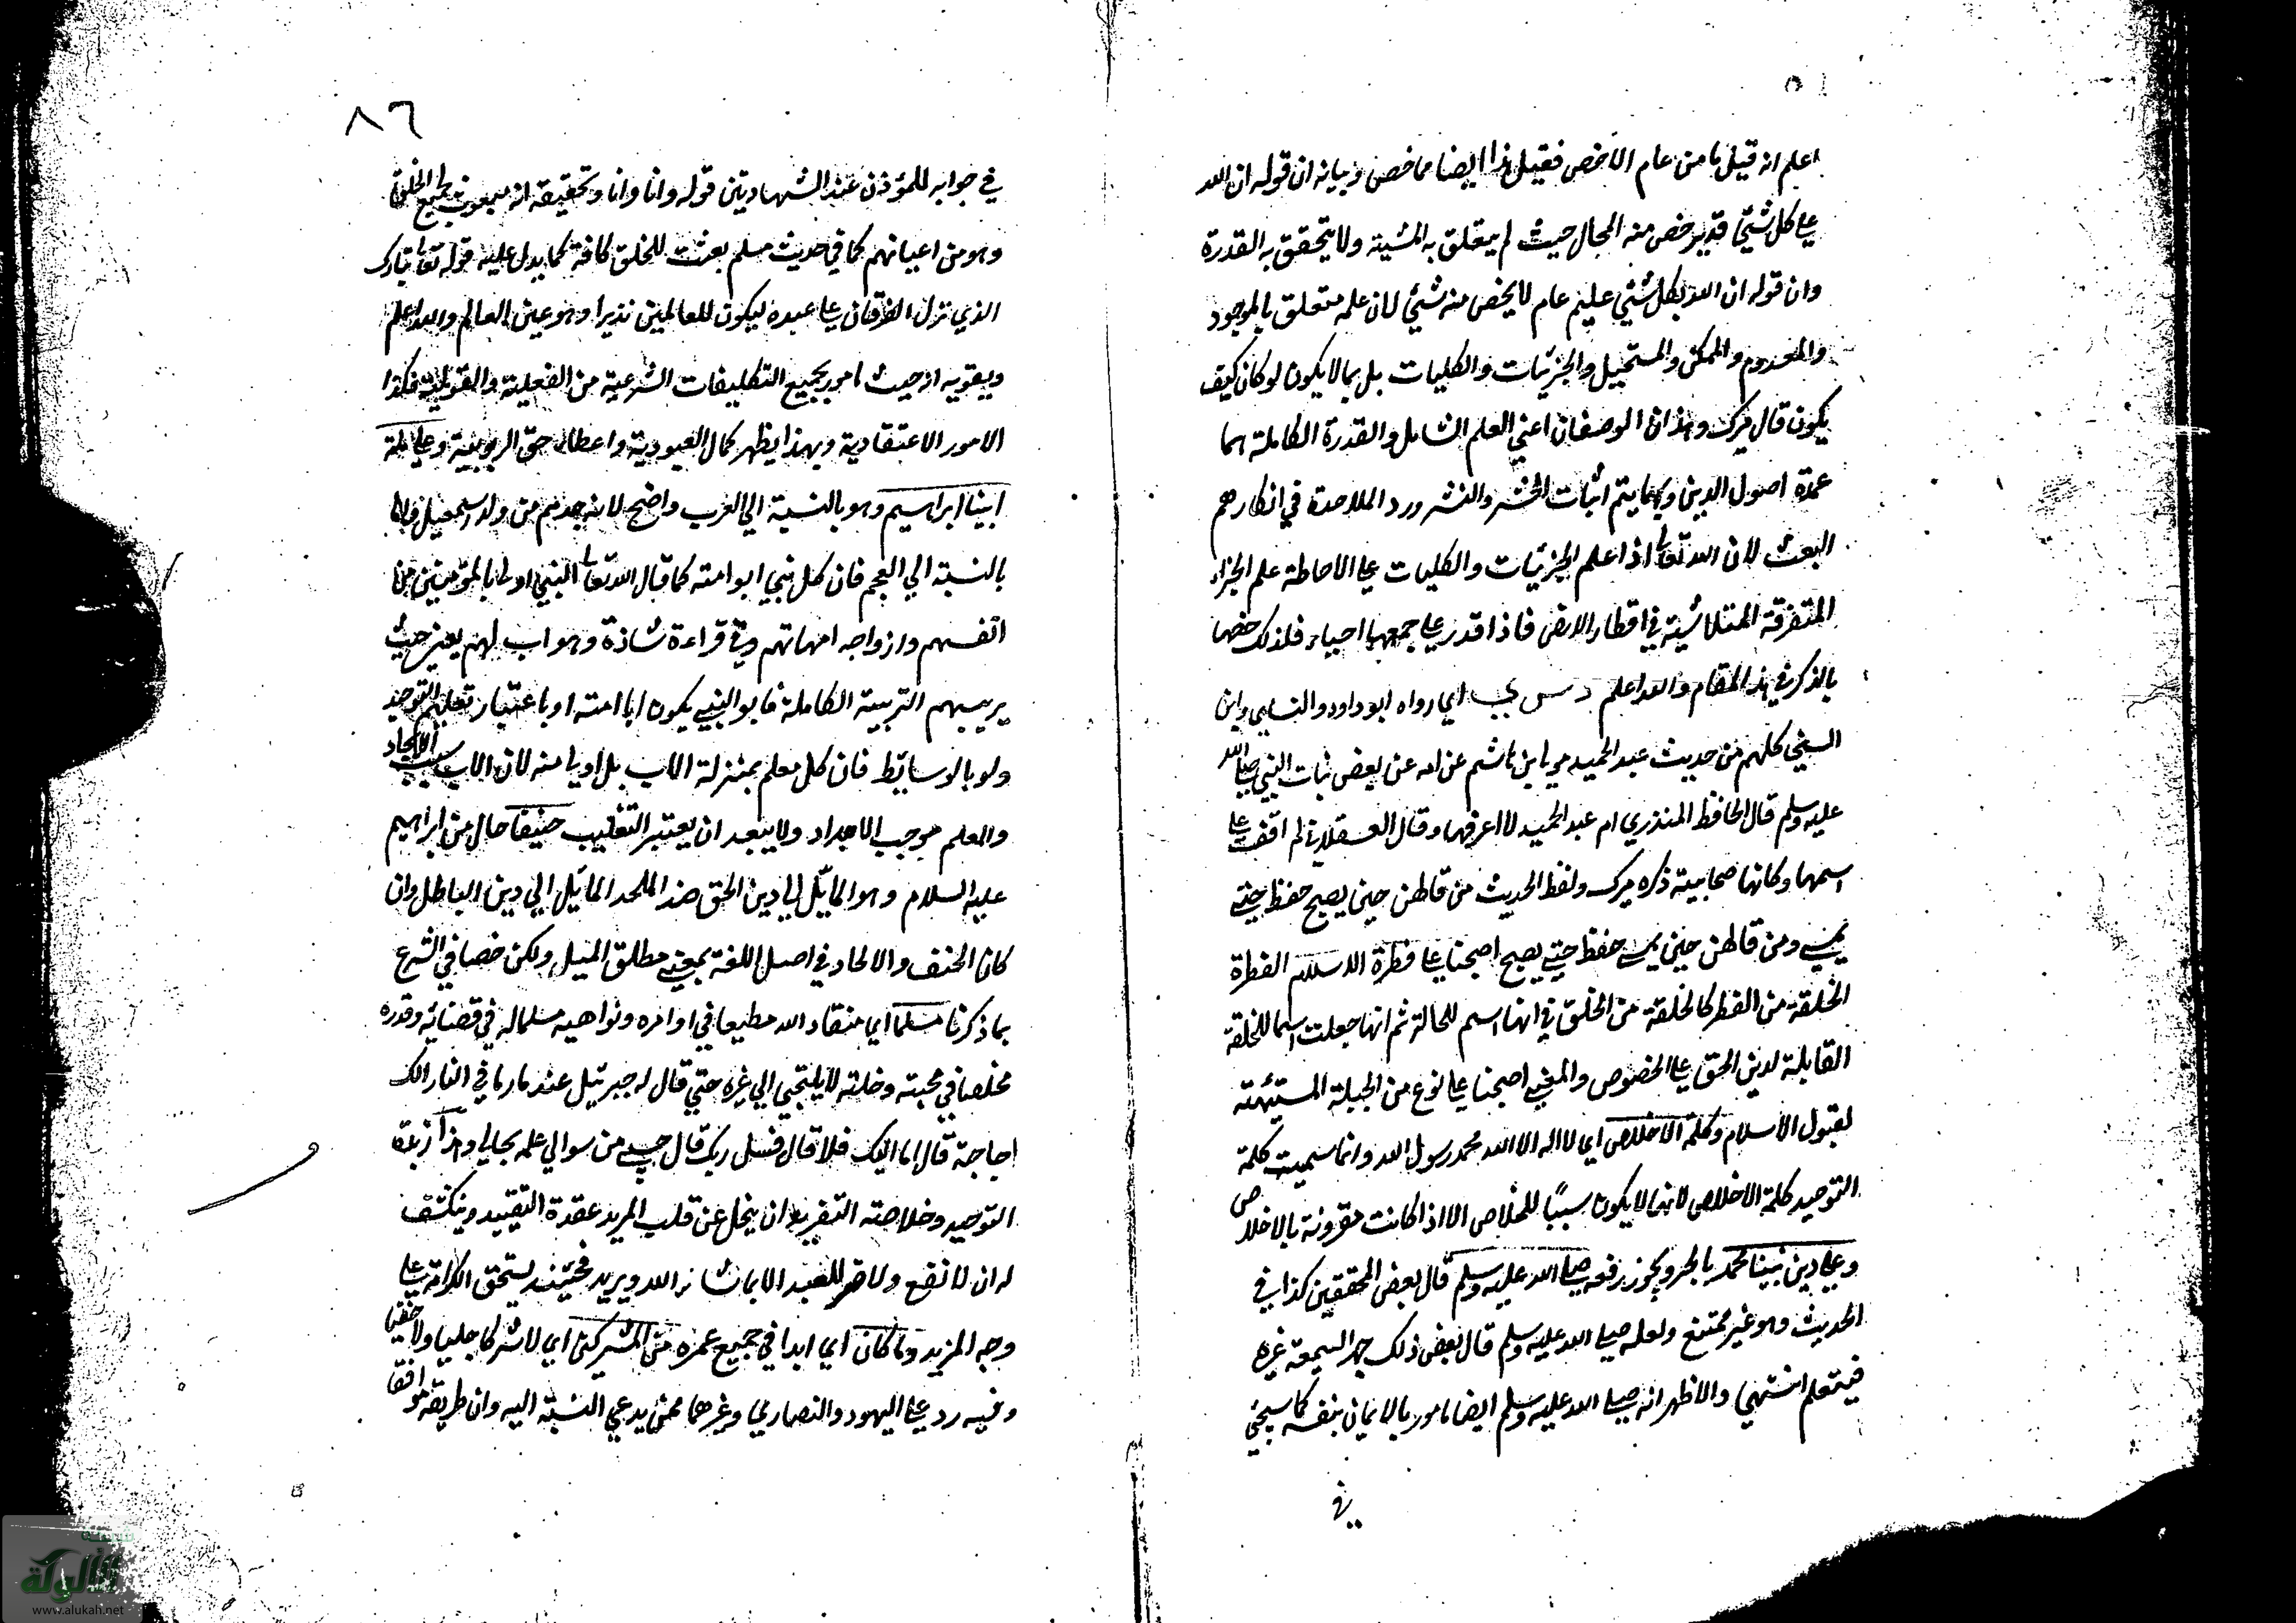 اعلم انه قيل ما من عام الا خص فقيل هذا ايضا مما خص وبيانه ان قوله ان الله
على كل شيئ قدير خص منه المحال حيث لم يتعلق به المشية ولا يتحقق به القدرة
وان قوله ان الله بكل شيئ عليم عام لا يخص منه شيئ لان علمه متعلق بالموجود
والمعدوم والممكن والمستحيل والجزئيات والكليات بل بما لا يكون لو كان كيف
يكون قال ميرك وهذان الوصفان اعني العلم الشامل والقدرة الكاملة هما
عمدة اصول الدين وبهما يتم اثبات الحشر والنشر ورد الملاحدة في انكارهم
البعث لان الله تعالى اذا علم الجزئيات والكليات على الاحاطة علم الاجزاء
المتفرقة المتلاشية في اقطار الارض فاذا قدر على جمعها احياء فلذلك خصها
بالذكر في هذا المقام والله اعلم د س ي اي رواه ابو داود والنسايي وابن
السني كلهم من حديث عبد الحميد مولى ابن هاشم عن امه عن بعض بنات النبي صلى الله
عليه وسلم قال الحافظ المنذري ام عبد الحميد لا اعرفها وقال العسقلاني لم اقف على
اسمها وكانها صحابية ذكره ميرك ولفظ الحديث من قالهن حين يصبح حفظ حتى
يمسي ومن قالهن حين يمسي حفظ حتى يصبح اصبحنا على فطرة الاسلام الفطرة
الخلقة من الفطر كالخلقة من الخلق في انها اسم للحالة ثم انها جعلت اسما للخلقة
القابلة لدين الحق على الخصوص والمعنى اصبحنا على نوع من الجبلة المستيهئة
لقبول الاسلام وكلمة الاخلاص اي لا اله الا الله محمد رسول الله وانما سميت كلمة
التوحيد كلمة الاخلاص لانها لا يكون سببًا للخلاص الا اذا كانت مقرونة بالاخلاص
وعلى دين نبينا محمد بالجر ويجوز رفعه صلى الله عليه وسلم قال بعض المحققين كذا في
الحديث وهو غير ممتنع ولعله صلى الله عليه وسلم قال بعض ذلك جهرا ليسمعه غيره
فيتعلم انتهى والاظهر انه صلى الله عليه وسلم ايضا مامور بالايمان بنفسه كما سيجئ
في
٨٦
في جوابه للمؤذن عند الشهادتين قوله وانا وانا وتحقيقه انه مبعوث لجميع الخلق
وهو من اعيانهم كما في حديث مسلم بعثت للخلق كافة كما يدل عليه قوله تعالى تبارك
الذي نزل الفرقان على عبده ليكون للعالمين نذيرا وهو عين العالم والله اعلم
ويقويه انه حيث امور بجميع التكليفات الشرعية من الفعلية والقولية فكذا
الامور الاعتقادية وبهذا يظهر كمال العبودية واعطاء حق الربوبية وعلى ملة
ابينا ابراهيم وهو بالنسبة الى العرب واضح لانه جدهم من ولد اسمعيل واما
بالنسبة الي العجم فان كل نبي ابو امته كما قال الله تعالى النبي اولى بالمؤمنين من
انفسهم وازواجه امهاتهم وفي قراءة شاذة وهو اب لهم يعني حيث
يربيهم التربية الكاملة فابو النبي يكون ابا امته او باعتبار تعليم التوحيد
ولو بالوسائط فان كل معلم بمنزلة الاب بل اولى منه لان الاب سبب الايجاد
والمعلم موجب الامداد ولا يبعد ان يعتبر التغليب حنيفا حال من ابراهيم
عليه السلام وهو المائل الى دين الحق ضد الملحد المائل الي دين الباطل وان
كان الحنف والالحاد في اصل اللغة بمعنى مطلق الميل ولكن خصا في الشرع
بما ذكرنا مسلما اي منقادا لله مطيعا في اوامره ونواهيه مسلما له في قضائه وقدره
مخلصا في محبته وخلته لا يلتجي الي غيره حتي قال له جبرئيل عند ما رما في النار الك
احاجة قال اما اليك فلا قال فسل ربك قال حسبي من سوالي علمه بحالي وهذا زبدة
التوحيد وخلاصته التفريد ان ينحل عن قلب المريد عقدة التقييد وينكشف
له ان لا نفع ولا ضر للعبد الا بما شاء الله ويريد فحينئذ يستحق الكرامة على
وجه المزيد وما كان اي ابدا في جميع عمره من المشركين اي لا شركا جليا ولا خفيا
وفيه رد على اليهود والنصارى وغيرهما ممن يدعي النسبة اليه وان طريقه موافقا
شبكة
الألوكة
www.alukah.net